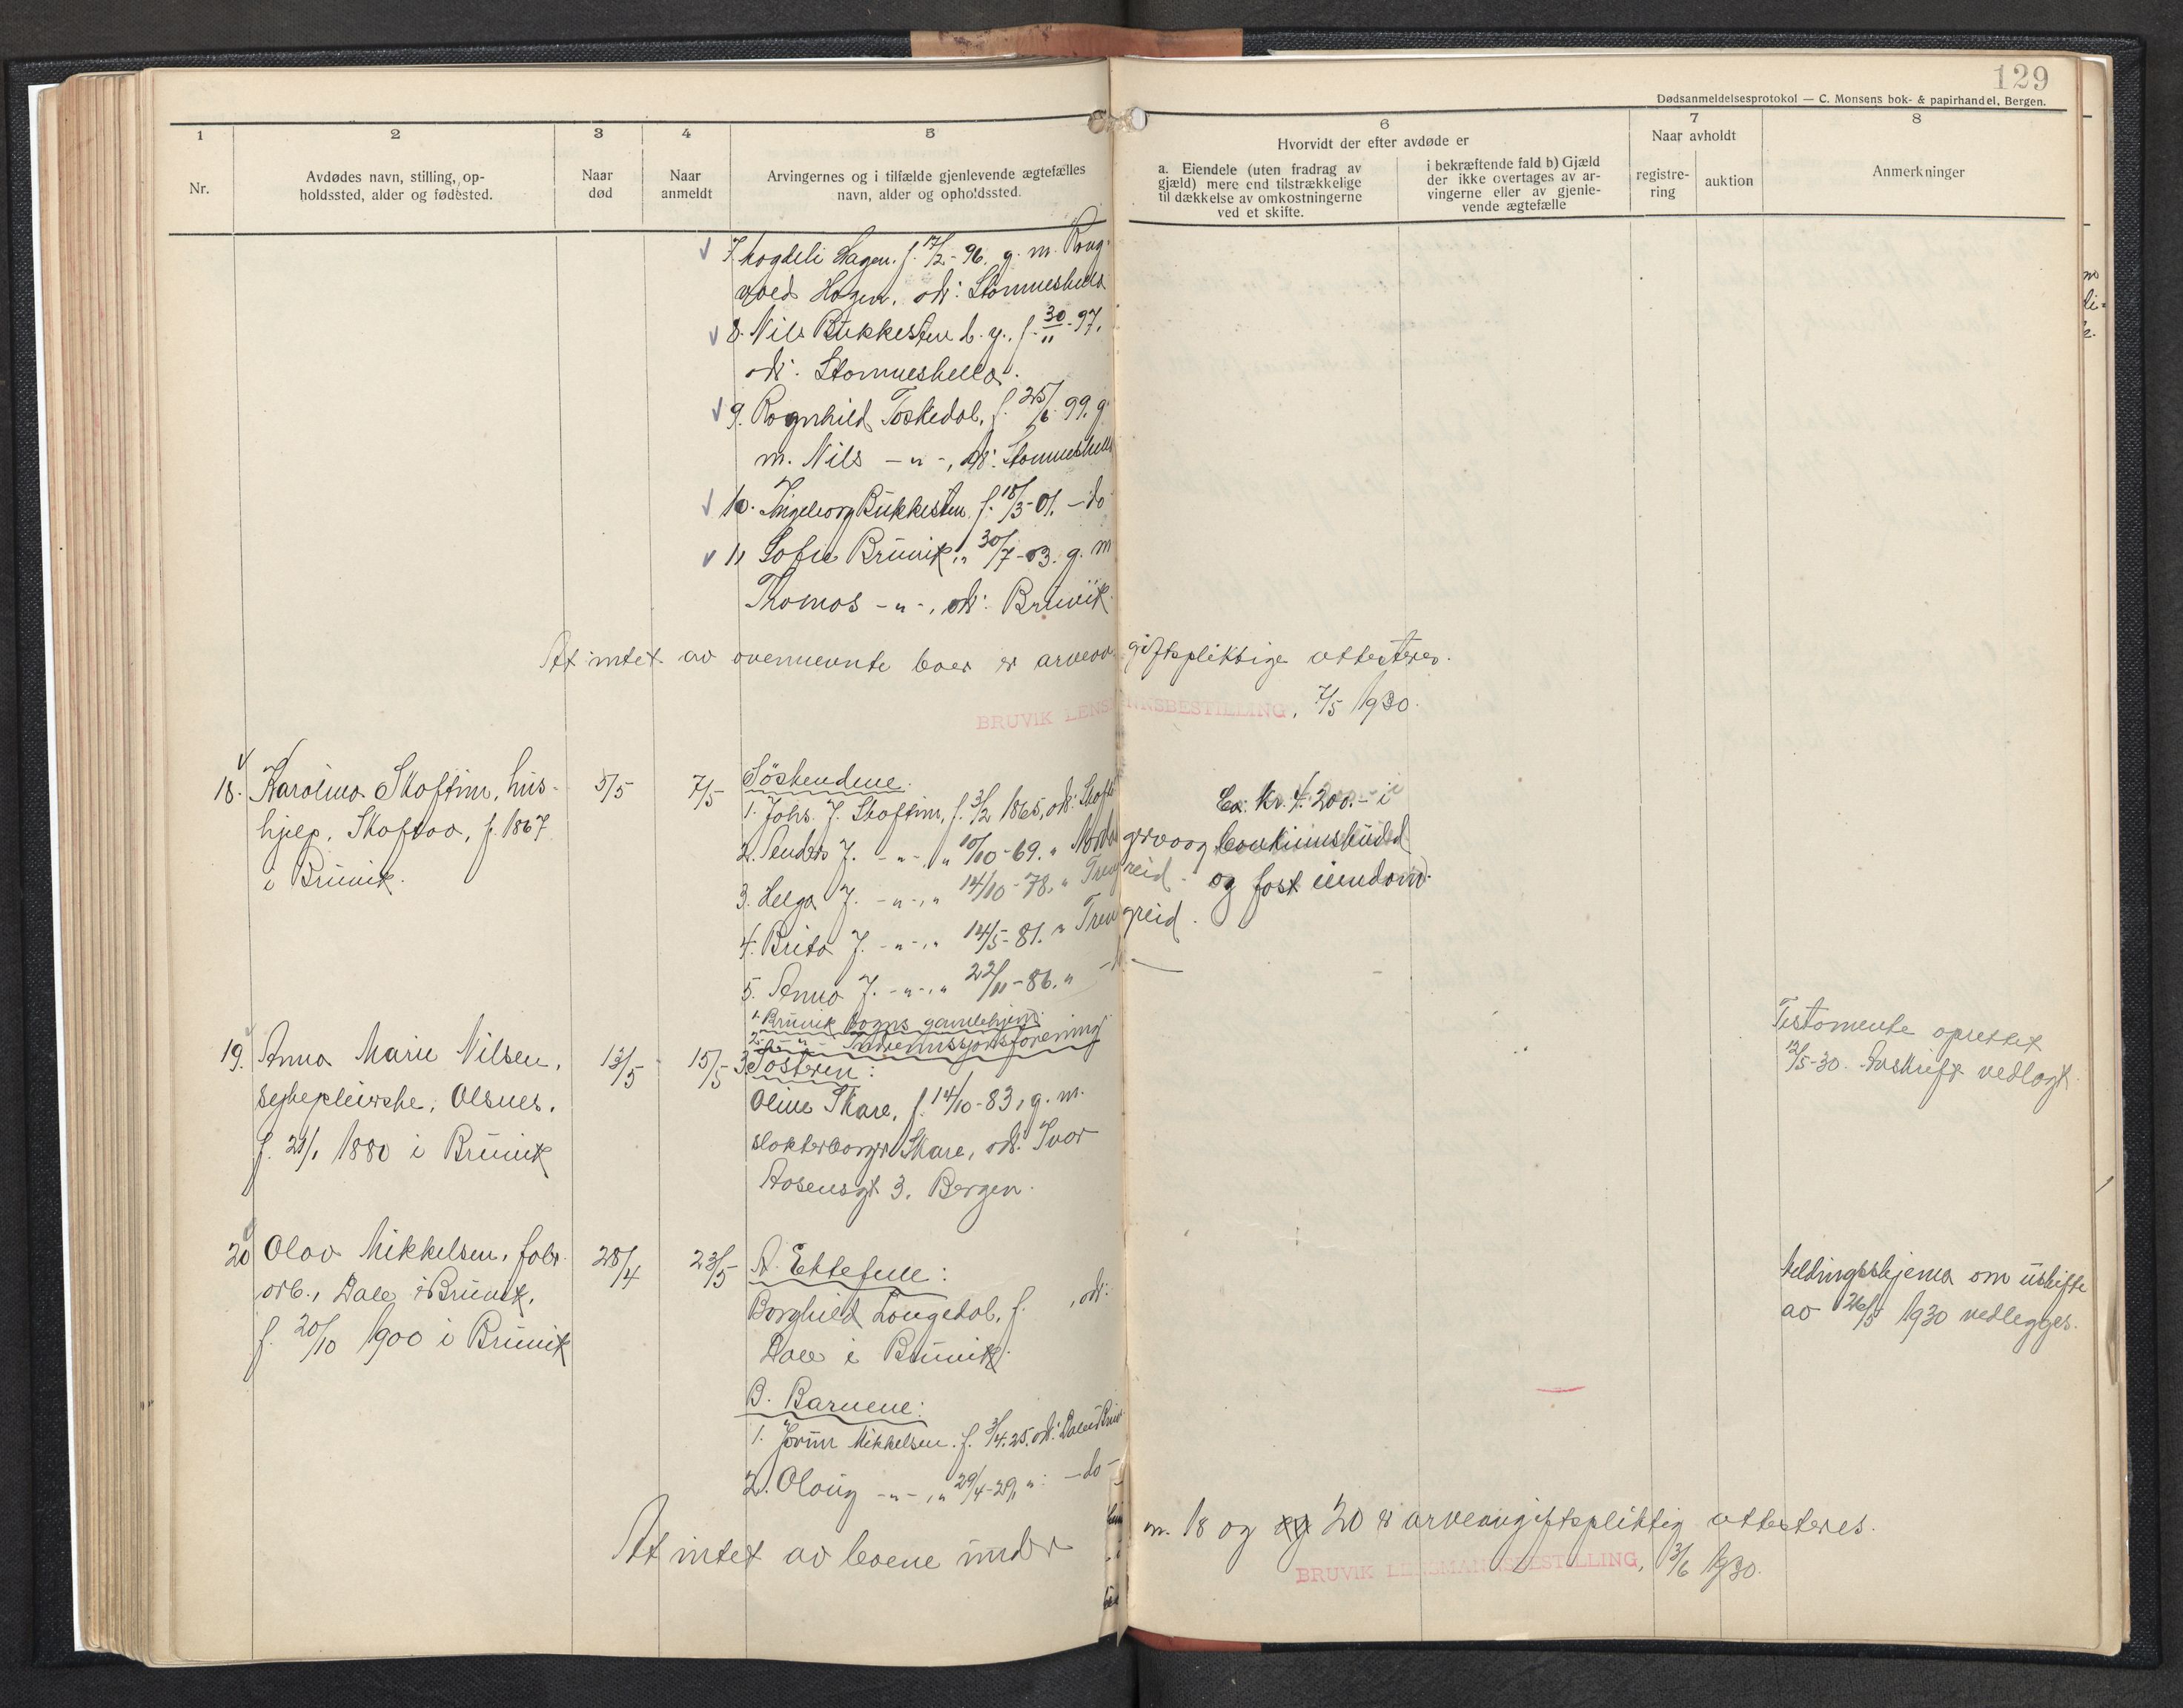 129
Dødsanmeldelsesprotokol — C. Monsens bok- & papirhandel, Bergen.
1 2 3 4 5 6 7 8
Nr.
Avdødes navn, stilling, op-
holdssted, alder og fødested.
Naar
død
Naar
anmeldt
Arvingernes og i tilfælde gjenlevende ægtefælles
navn, alder og opholdssted.
Hvorvidt der efter avdøde er
a. Eiendele (uten fradrag av
gjæld) mere end tilstrækkelige
til dækkelse av omkostningerne
ved et skifte.
i bekræftende fald b) Gjæld
der ikke overtages av ar-
vingerne eller av gjenle-
vende ægtefælle
Naar avholdt
registre-
ring
auktion
Anmerkninger
7. Hagen. f. 17/2-96. g. m. Rong-
vald Hagen, adr: Stamneshella
8. Nils Bukkesten b. y., f. 30/11-97.
adr: Stamneshella.
9. Ragnhild Toskedal, f. 25/6 99. g.
m. Nils -"-, adr: Stamneshella
10. Ingeborg Bukkesten f. 18/3-01. -do
11 Sofie Bruvik, " 30/7-03. g. m
Thomas -"-, adr: Bruvik.
At intet av ovennevnte boer er arveavgiftspliktige attesteres.
BRUVIK LENSMANNSBESTILLING, 7/5 1930.
18. Karolina Skaftun, hus-
hjelp, Skaftaa, f. 1867
i Bruvik.
5/5
7/5
Söskendene:
1. Johs. J. Skaftun, f. 3/2 1865, adr: Skaft
2. Anders J. -"-, " 10/10-69. "
3. Helga J. -"-, " 14/10-78. " Trengreid.
4. Brita J. -"-, " 14/5-81. " Trengreid.
5. Anna J. -"-, " 22/11-86. " -do-
Ca. kr. 4.200.- i
bankinnskudd
og fast eiendom.
19. Anna Marie Nilsen,
sykepleierske, Olsnes,
f. 21/1 1880 i Bruvik
13/5
15/5
1. Bruvik sogns gamlehjem
2. -"- Indremissjonsforening
3. Søsteren:
Oline Skare, f. 14/10-83, g. m.
slakterborger Skare, adr: Ivar
Aasensgt 3, Bergen.
Testamente oprettet
12/5-30. Avskrift vedlagt.
20 Olav Mikkelsen, fabr.
arb., Dale i Bruvik,
f. 20/10 1900 i Bruvik
28/4
23/5
A. Ektefelle:
Borghild Langedal, f. , adr:
Dale i Bruvik.
B. Barnene:
1. Jorun Mikkelsen. f. 3/4.25, adr: Dale i Bruv
2. Olaug -"-, " 29/4-29, ": -do-
Meldingsskjema om uskifte
av 26/5 1930 vedlegges.
At intet av boene under nr. 18 og 20 er arveavgiftspliktig attesteres.
BRUVIK LENSMANNSBESTILLING, 3/6 1930.